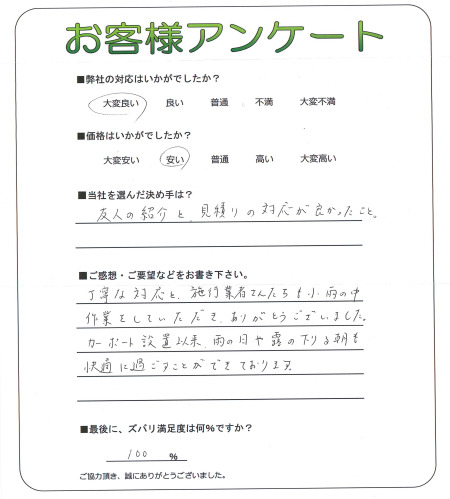 お客様アンケート
■弊社の対応はいかがでしたか？
大変良い 良い 普通 不満 大変不満
■価格はいかがでしたか？
大変安い 安い 普通 高い 大変高い
■当社を選んだ決め手は？
友人の紹介と、見積りの対応が良かったこと。
■ご感想・ご要望などをお書き下さい。
丁寧な対応と、施行業者さんたちも小雨の中
作業をしていただき、ありがとうございました。
カーポート設置以来、雨の日や霜の下りる朝も
快適に過ごすことができております。
■最後に、ズバリ満足度は何%ですか？
100 %
ご協力頂き、誠にありがとうございました。